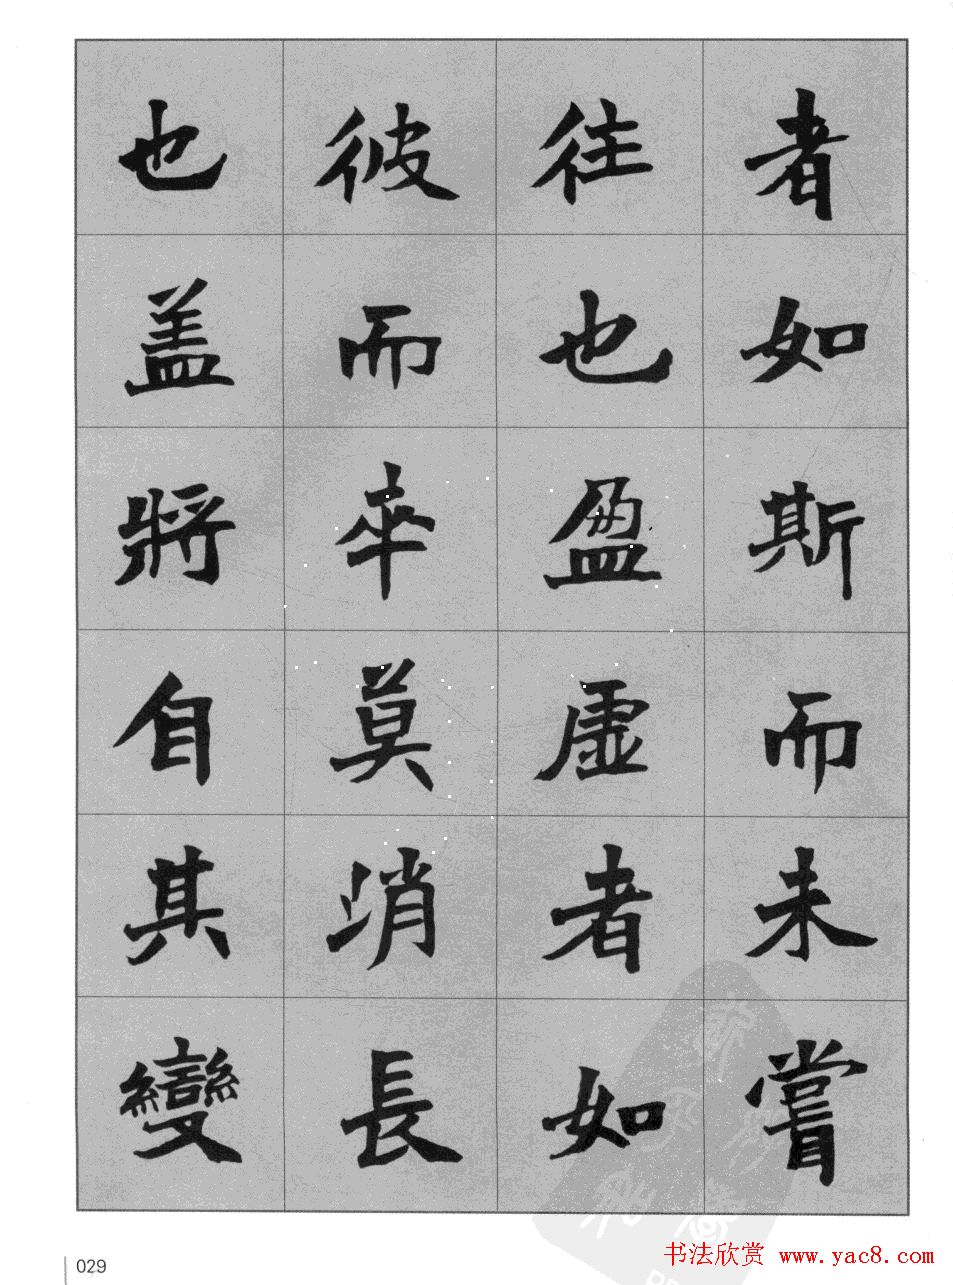 者如斯而未嘗
往也盈虛者如
彼而卒莫消長
也盖將自其變
029
书法欣赏 www.yac8.com